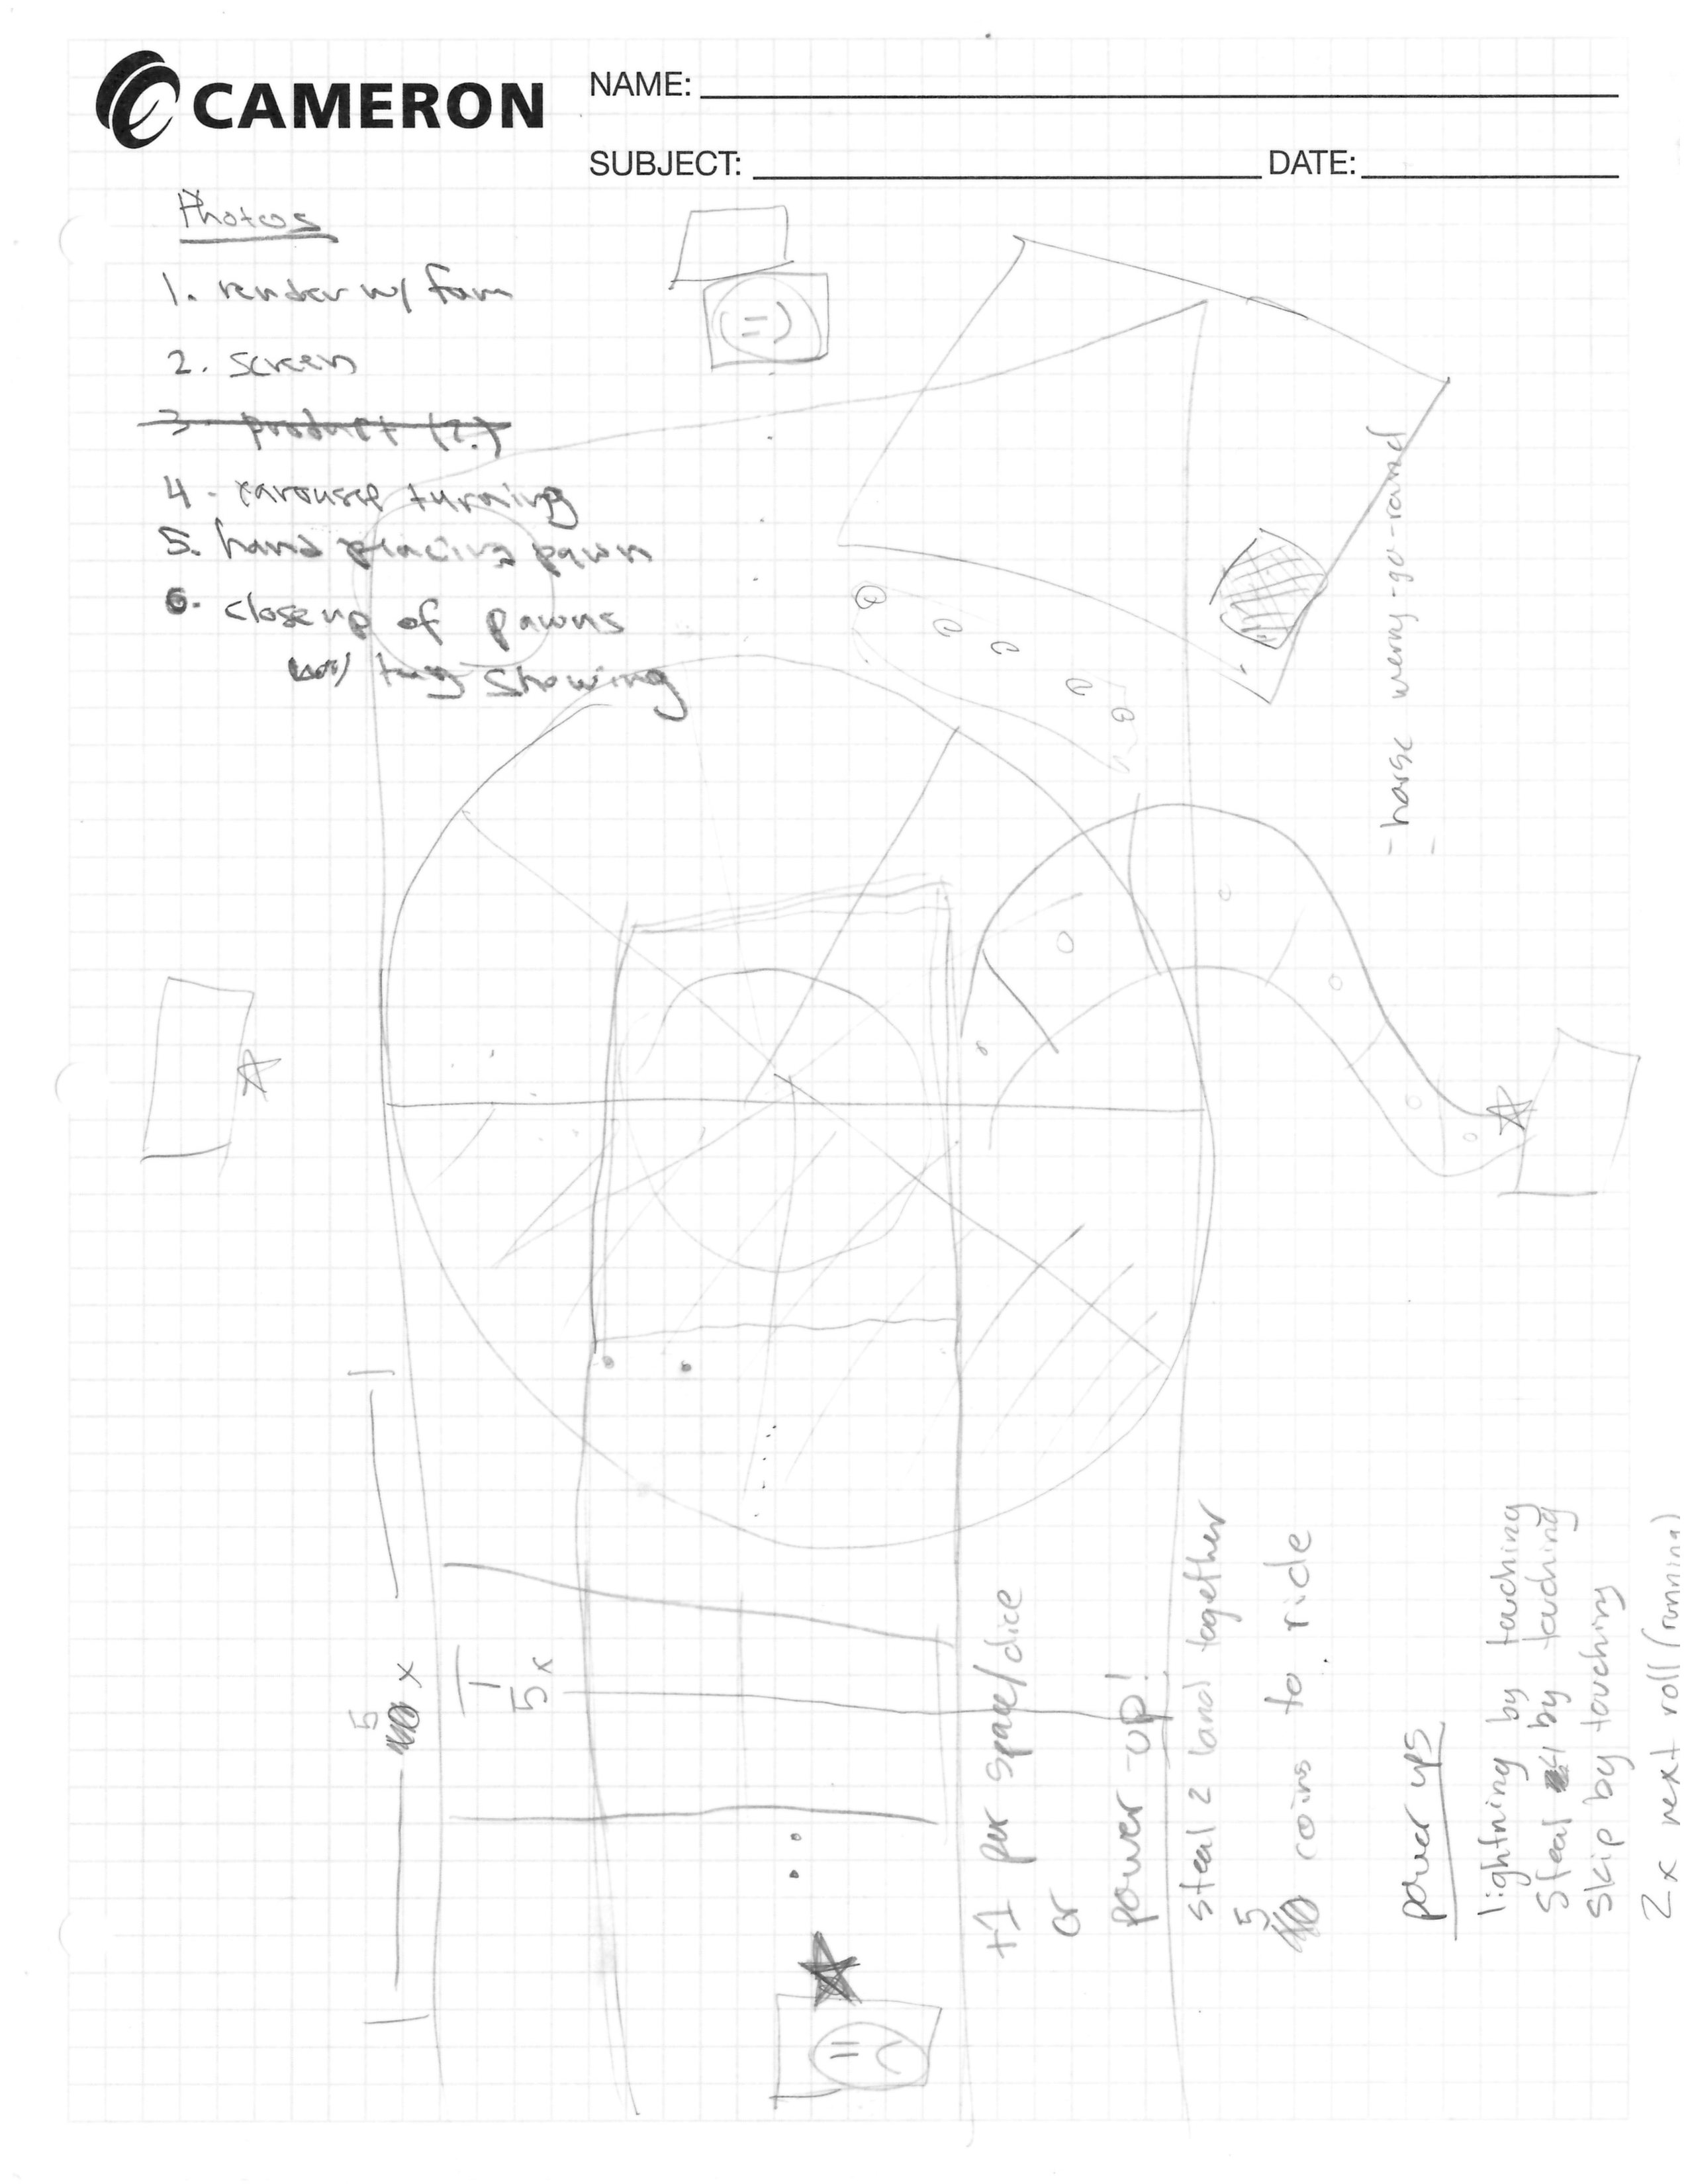 CAMERON
NAME:
SUBJECT:
DATE:
Photos
1. render w/ fam
2. screen
3. product (?)
4. carousel turning
5. hand placing pawn
6. closeup of pawns
w/ tag showing
- horse merry-go-round
-
5 x
5x
+1 per space/dice
or
power-up!
steal 2 land together
5 coins to ride
power ups
lightning by touching
steal by touching
skip by touching
2x next roll (running)